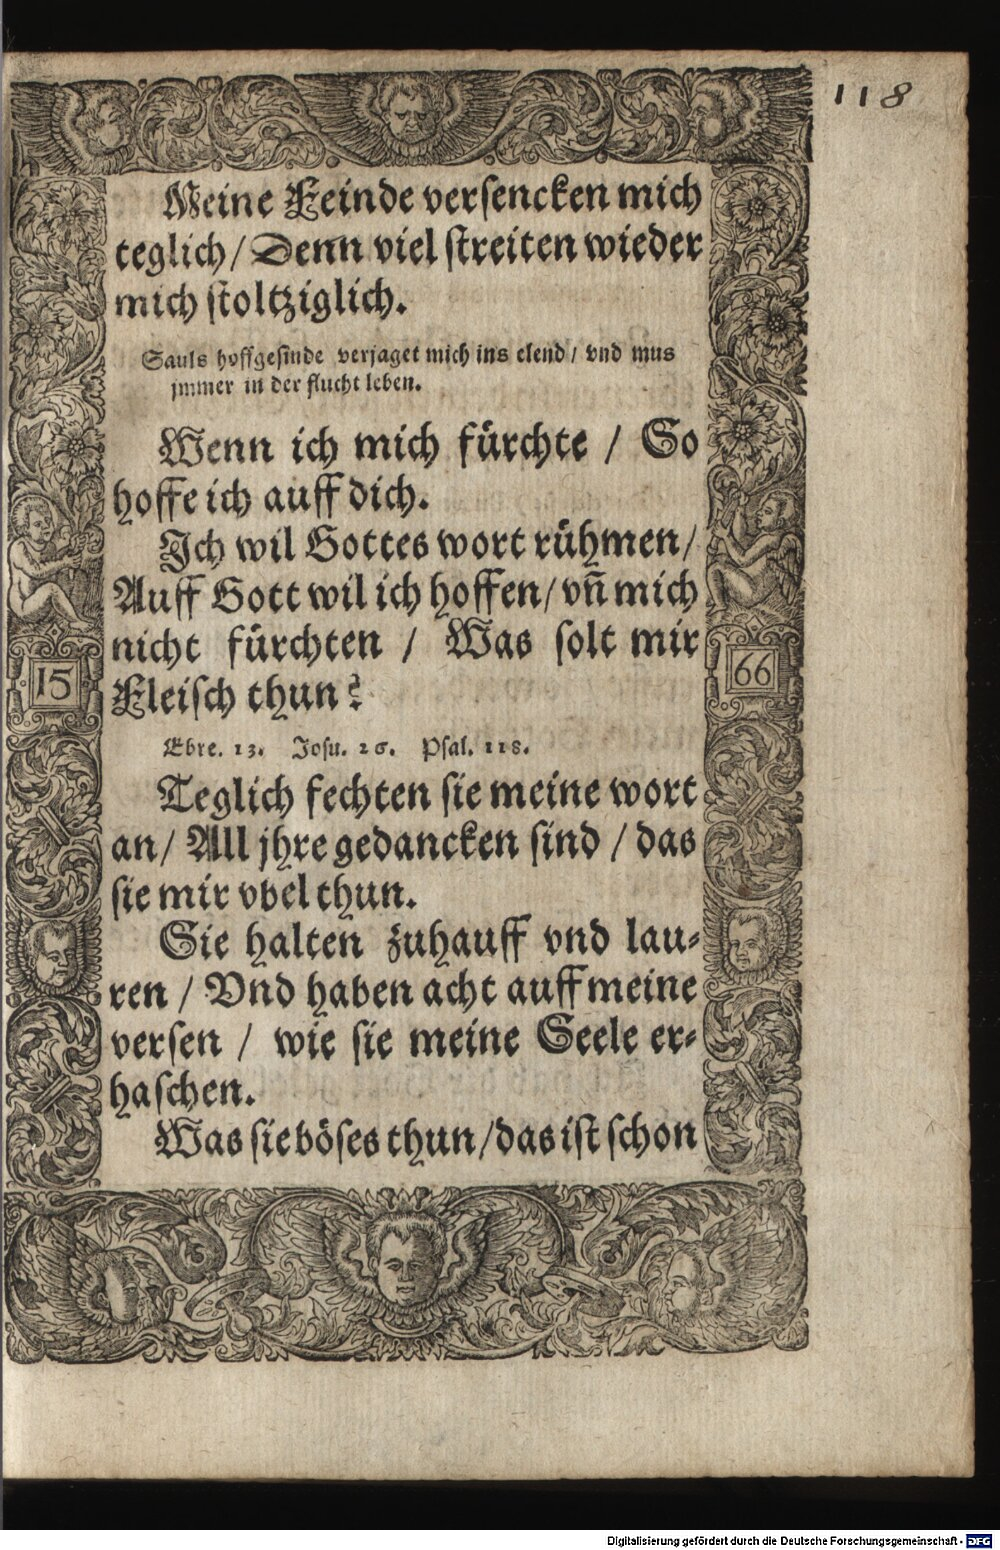 118
Meine Feinde versencken mich
teglich / Denn viel streiten wieder
mich stoltziglich.
Sauls hoffgesinde verjaget mich ins elend / vnd mus
jmmer in der flucht leben.
Wenn ich mich fürchte / So
hoffe ich auff dich.
Ich wil Gottes wort rühmen /
Auff Gott wil ich hoffen / vñ mich
nicht fürchten / Was solt mir
Fleisch thun?
15 66
Ebre. 13. Josu. 26. Psal. 118.
Teglich fechten sie meine wort
an / All jhre gedancken sind / das
sie mir vbel thun.
Sie halten zuhauff vnd lau-
ren / Vnd haben acht auff meine
versen / wie sie meine Seele er-
haschen.
Was sie böses thun / das ist schon
Digitalisierung gefördert durch die Deutsche Forschungsgemeinschaft - DFG